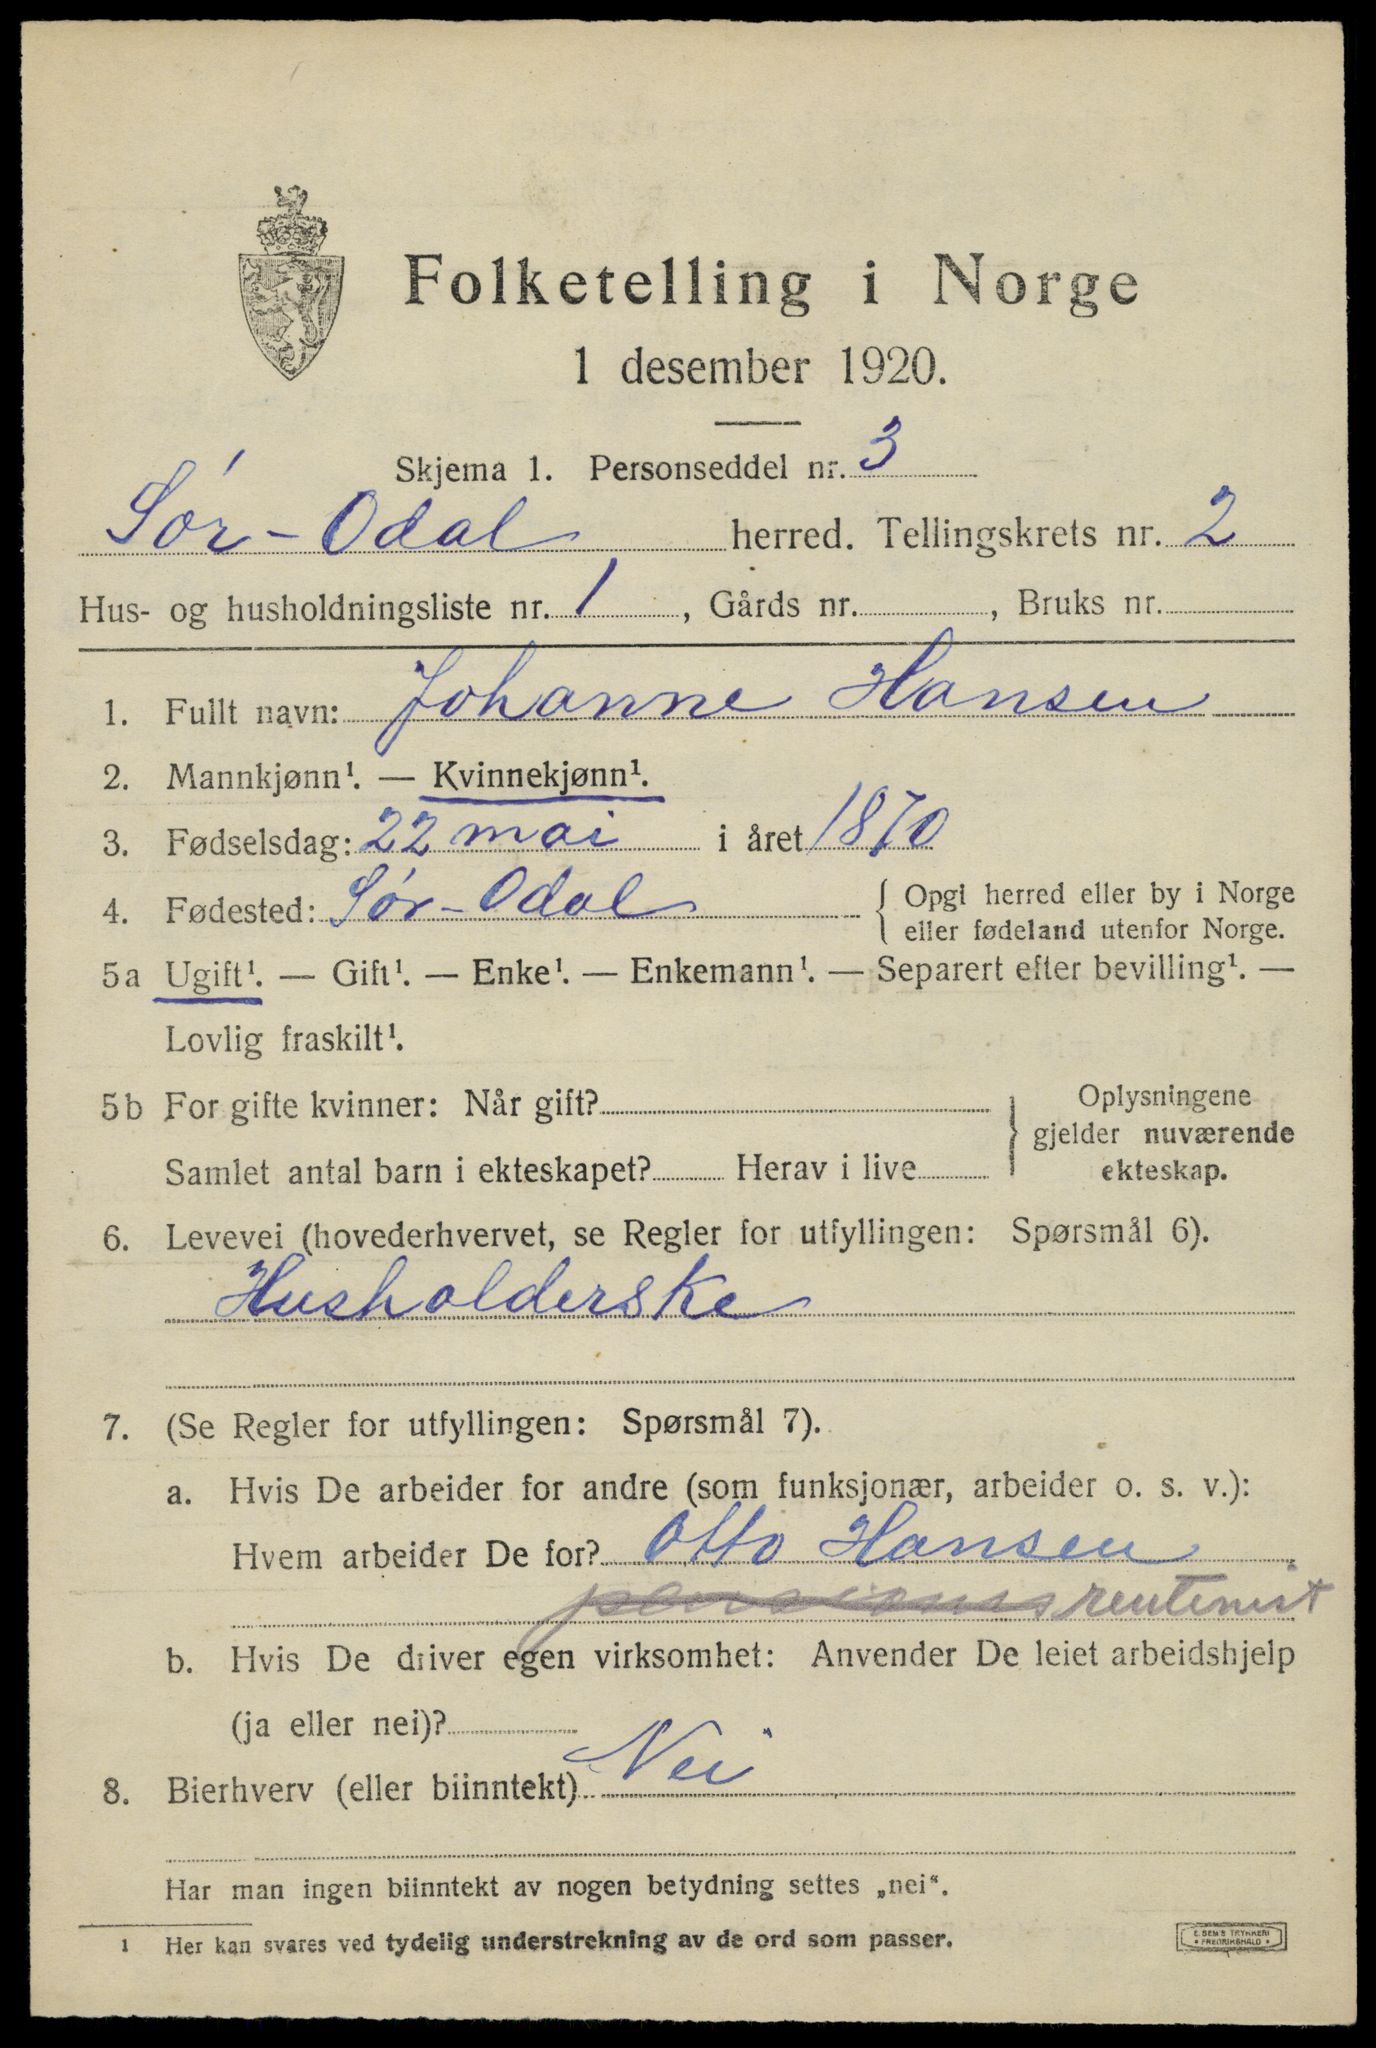 Folketelling i Norge
1 desember 1920.
Skjema 1. Personseddel nr. 3
Sør-Odal herred. Tellingskrets nr. 2
Hus- og husholdningsliste nr. 1, Gårds nr. , Bruks nr.
1. Fullt navn: Johanne Hansen
2. Mannkjønn¹. — Kvinnekjønn¹.
3. Fødselsdag: 22 mai i året 1870
4. Fødested: Sør-Odal { Opgi herred eller by i Norge
eller fødeland utenfor Norge.
5a Ugift¹. — Gift¹. — Enke¹. — Enkemann¹. — Separert efter bevilling¹. —
Lovlig fraskilt¹.
5b For gifte kvinner: Når gift? } Oplysningene
gjelder nuværende
ekteskap.
Samlet antal barn i ekteskapet? Herav i live
6. Levevei (hovederhvervet, se Regler for utfyllingen: Spørsmål 6).
Husholderske
7. (Se Regler for utfyllingen: Spørsmål 7).
a. Hvis De arbeider for andre (som funksjonær, arbeider o. s. v.):
Hvem arbeider De for? Otto Hansen
rentenist
b. Hvis De driver egen virksomhet: Anvender De leiet arbeidshjelp
(ja eller nei)?
8. Bierhverv (eller biinntekt) Nei
Har man ingen biinntekt av nogen betydning settes „nei“.
1 Her kan svares ved tydelig understrekning av de ord som passer.
E. SEM'S TRYKKERI
FREDRIKSHALD